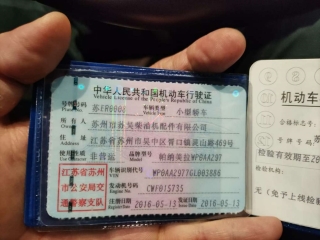 中华人民共和国机动车行驶证
Vehicle License of the People's Republic of China
号牌号码
车辆类型
Vehicle Type
小型轿车
所有人
苏州市苏吴柴油机配件有限公司
住址
江苏省苏州市吴中区胥口镇
469号
使用性质
非营运
品牌型号
帕纳美拉WP0AA29T
江苏省苏州
市公安局交
通警察支队
车辆识别代号
VIN
WP0AA2977GL003886
发动机号码
CWF015735
注册日期
2016-05-13
发证日期
2016-05-13
机动车
合格标志号
检验有效期至
无(免予上线检验